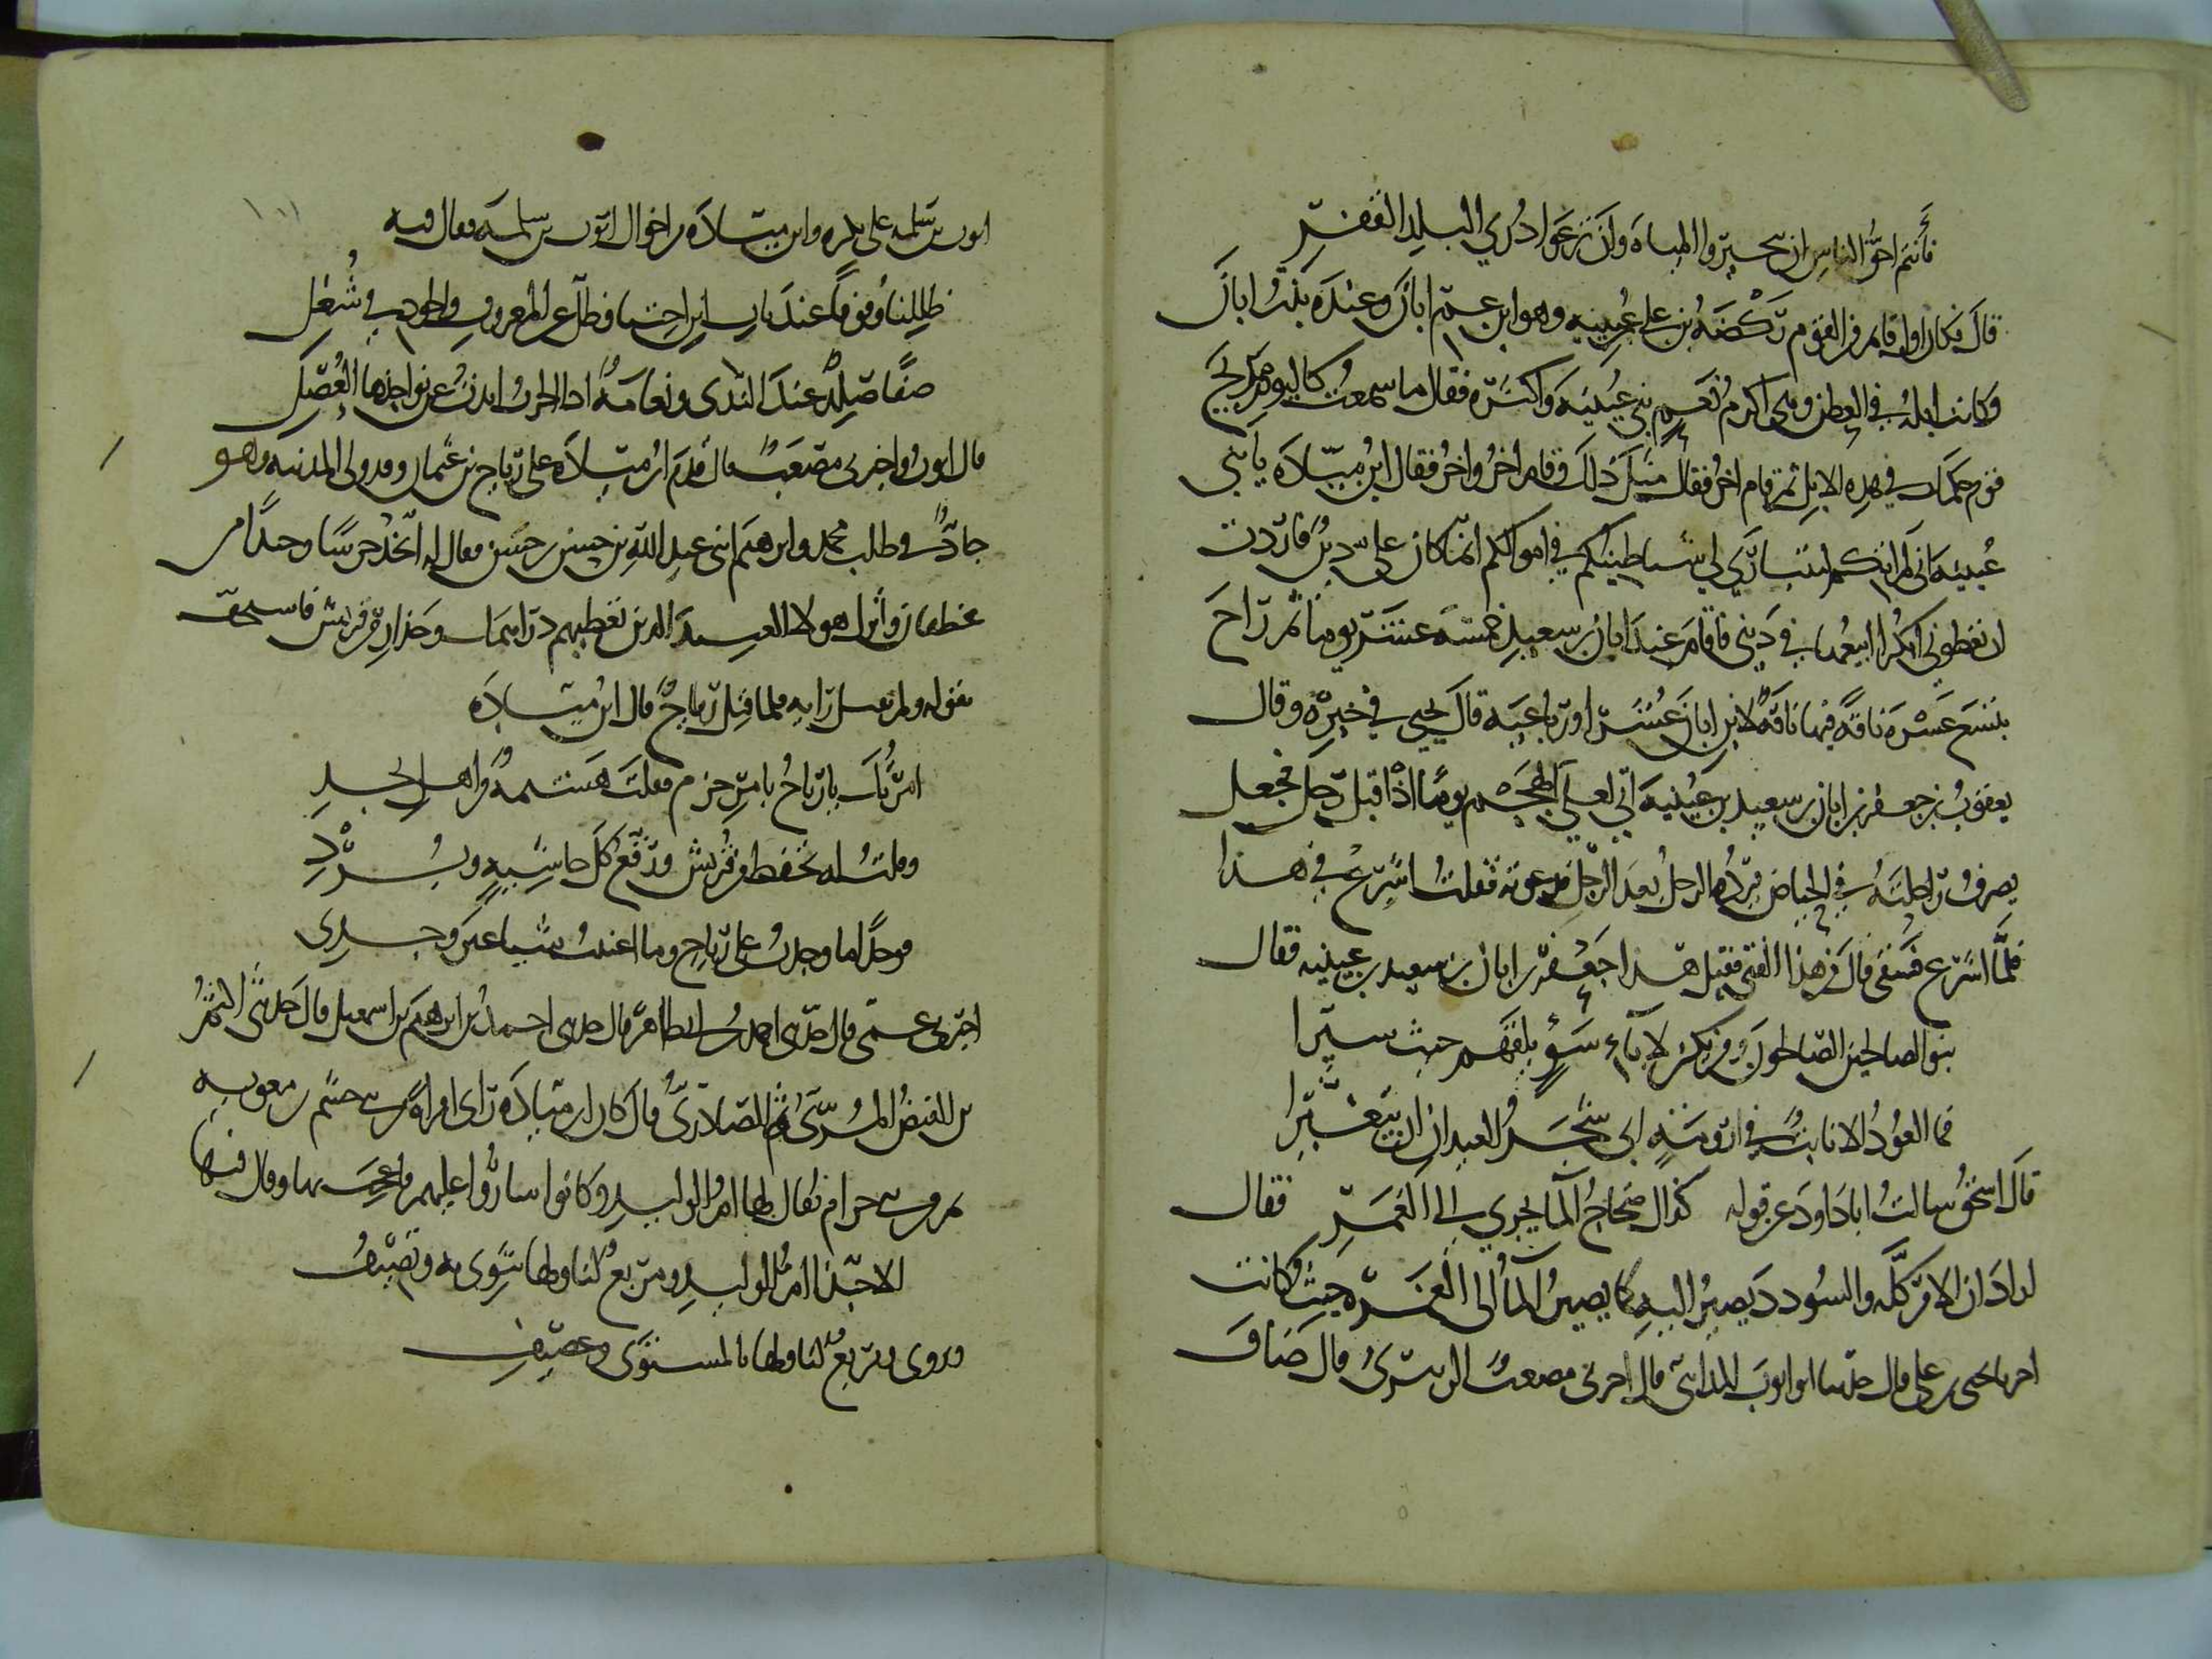 فأنتم احق الناس ان تتخيروا المياه وان ترعوا ذرى البلد القفر
قال فكان اول قايم من القوم ركضة بن علي بن عيينه وهو ابن عم ابان وعنده بنت ابان
وكانت ابله في العطن وهي اكرم نعم بني عيينه واكثره فقال ما سمعت كاليوم مديح
قوم حكمك في هذه الابل ثم قام اخر فقال مثل ذلك وقام اخر واخر فقال ابن ميّاده يا بني
عيينه اني لم اتكم لتتباروا لي شياطينكم في اموالكم انما كان علي دين فاردت
ان تعطوني ابكرا ابيعها في ديني فاقام عند ابان بن سعيد خمسة عشر يوما ثم راح
بتسع عشره ناقة فيها ناقة لابن ابان عشرا او رباعيه قال يحيى في خبره وقال
يعقوب بن جعفر بن ابان بن سعيد بن عيينه اني لعلى الهجم يوما اذ اقبل رجل فجعل
يصرف راحلته في الحياض فيردها الرجل بعد الرجل فدعوته فقلت اشرع في هذا
فلما اشرع فسقى قال من هذا الفتى فقيل هذا جعفر بن ابان بن سعيد بن عيينه فقال
بنو الصالحين الصالحون ومن يكن لاباء سوء يلقهم حيث سيرا
فما العود الا نابت في ارومة ابى شجر العيدان ان يتغيرا
قال اسحق سالت ابا داود عن قوله كذاك ضحاح الما يجري الى الغمر فقال
اراد ان الامر كله والسودد يصير اليه كما يصير الما الى الغمره حيث كانت
اخبرنا يحيى بن علي قال حدثنا ابو ايوب المدايني قال اخبرني مصعب الزبيري قال ضاف
ايوب بن سلمه على بكره وابن ميّاده من اخوال ايوب بن سلمه فقال فيه
ظللنا وقوفا عند باب ابن اختنا وظل عن المعروف والجود في شغل
صفا صلد عند الندى ونعامة اذا الحرب ابدت عن نواجذها العصل
قال ايوب واخبرني مصعب قال قدم ابن ميّاده على رياح بن عثمان وقد ولي المدينه وهو
جاد في طلب محمد وابرهيم ابني عبد الله بن حسن بن حسن فقال له اتخذ حرسا وجندا من
غطفان واترك هولا العبيد الذين تعطيهم دراهمك وحذار من قريش فاستخف
بقوله ولم يقبل رايه فلما قتل رياح قال ابن ميّاده
امرتك يا رياح بامر حزم فقلت هشيمة من اهل نجد
وقلت له تحفظ من قريش ورقع كل حاشية وبرد
فوجدا ما وجدت على رياح وما اغنيت شيا غير وجدي
اخبرني عمي قال حدثني احمد بن ابي طاهر قال حدثني احمد بن ابرهيم بن اسمعيل قال حدثني النضر
من الفيض المري ثم الصاردي قال كان ابن ميّاده راى امراه من بني جشم بن معويه
بن حرام يقال لها ام الوليد وكانوا ساروا عليهم فاعجب بها وقال فيها
الا حبذا ام الوليد ومربع لنا ولها نشوى به ونصيف
ويروى ومربع لنا ولها بالمستوى ومصيف